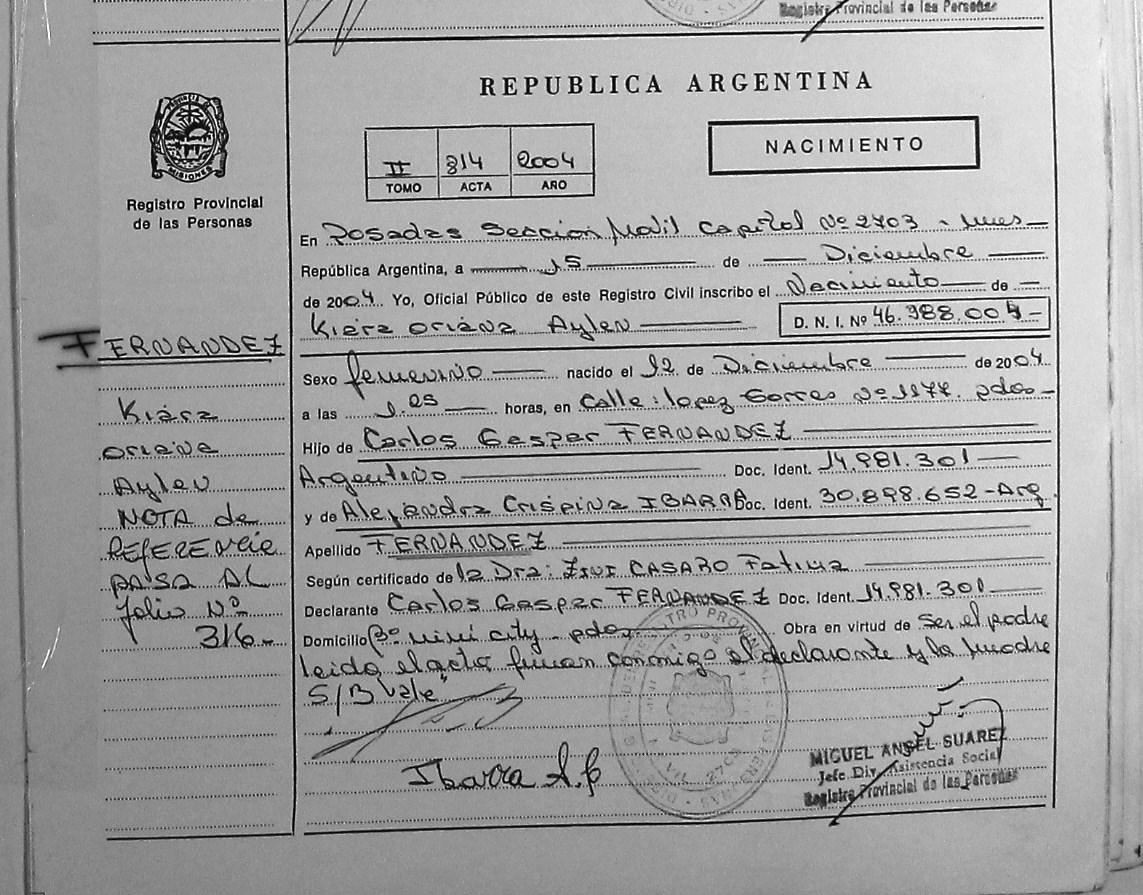 Registro Provincial de las Personas
REPUBLICA ARGENTINA
PROVINCIA DE
MISIONES
Registro Provincial
de las Personas
II 314 2004
TOMO ACTA AÑO
NACIMIENTO
En Posadas Sección Movil Capital Nº 2703 - Mnes
República Argentina, a 15 de Diciembre
de 2004 Yo, Oficial Público de este Registro Civil inscribo el Nacimiento de
Kiara Oriana Aylen
D. N. I. Nº 46.988.004-
Sexo femenino nacido el 12 de Diciembre de 2004
a las 1.05 horas, en Calle: lopez Torres Nº 1177. pdas-
Hijo de Carlos Gaspar FERNANDEZ
Argentino Doc. Ident. 14.981.301
y de Alejandra Crispina IBARRA Doc. Ident. 30.898.652-Arg.
Apellido FERNANDEZ
Según certificado de la Dra: CASARO Fatima
Declarante Carlos Gaspar FERNANDEZ Doc. Ident. 14.981.301
Domicilio Bº mini city - pdas Obra en virtud de Ser el padre
leida el acta firman conmigo el declarante y la madre
S/B Vale
Ibarra A.C
MIGUEL ANGEL SUAREZ
Jefe Div. Asistencia Social
Registro Provincial de las Personas
FERNANDEZ
Kiara
Oriana
Aylen
NOTA de
REFERENcia
PASA AL
folio Nº
316-